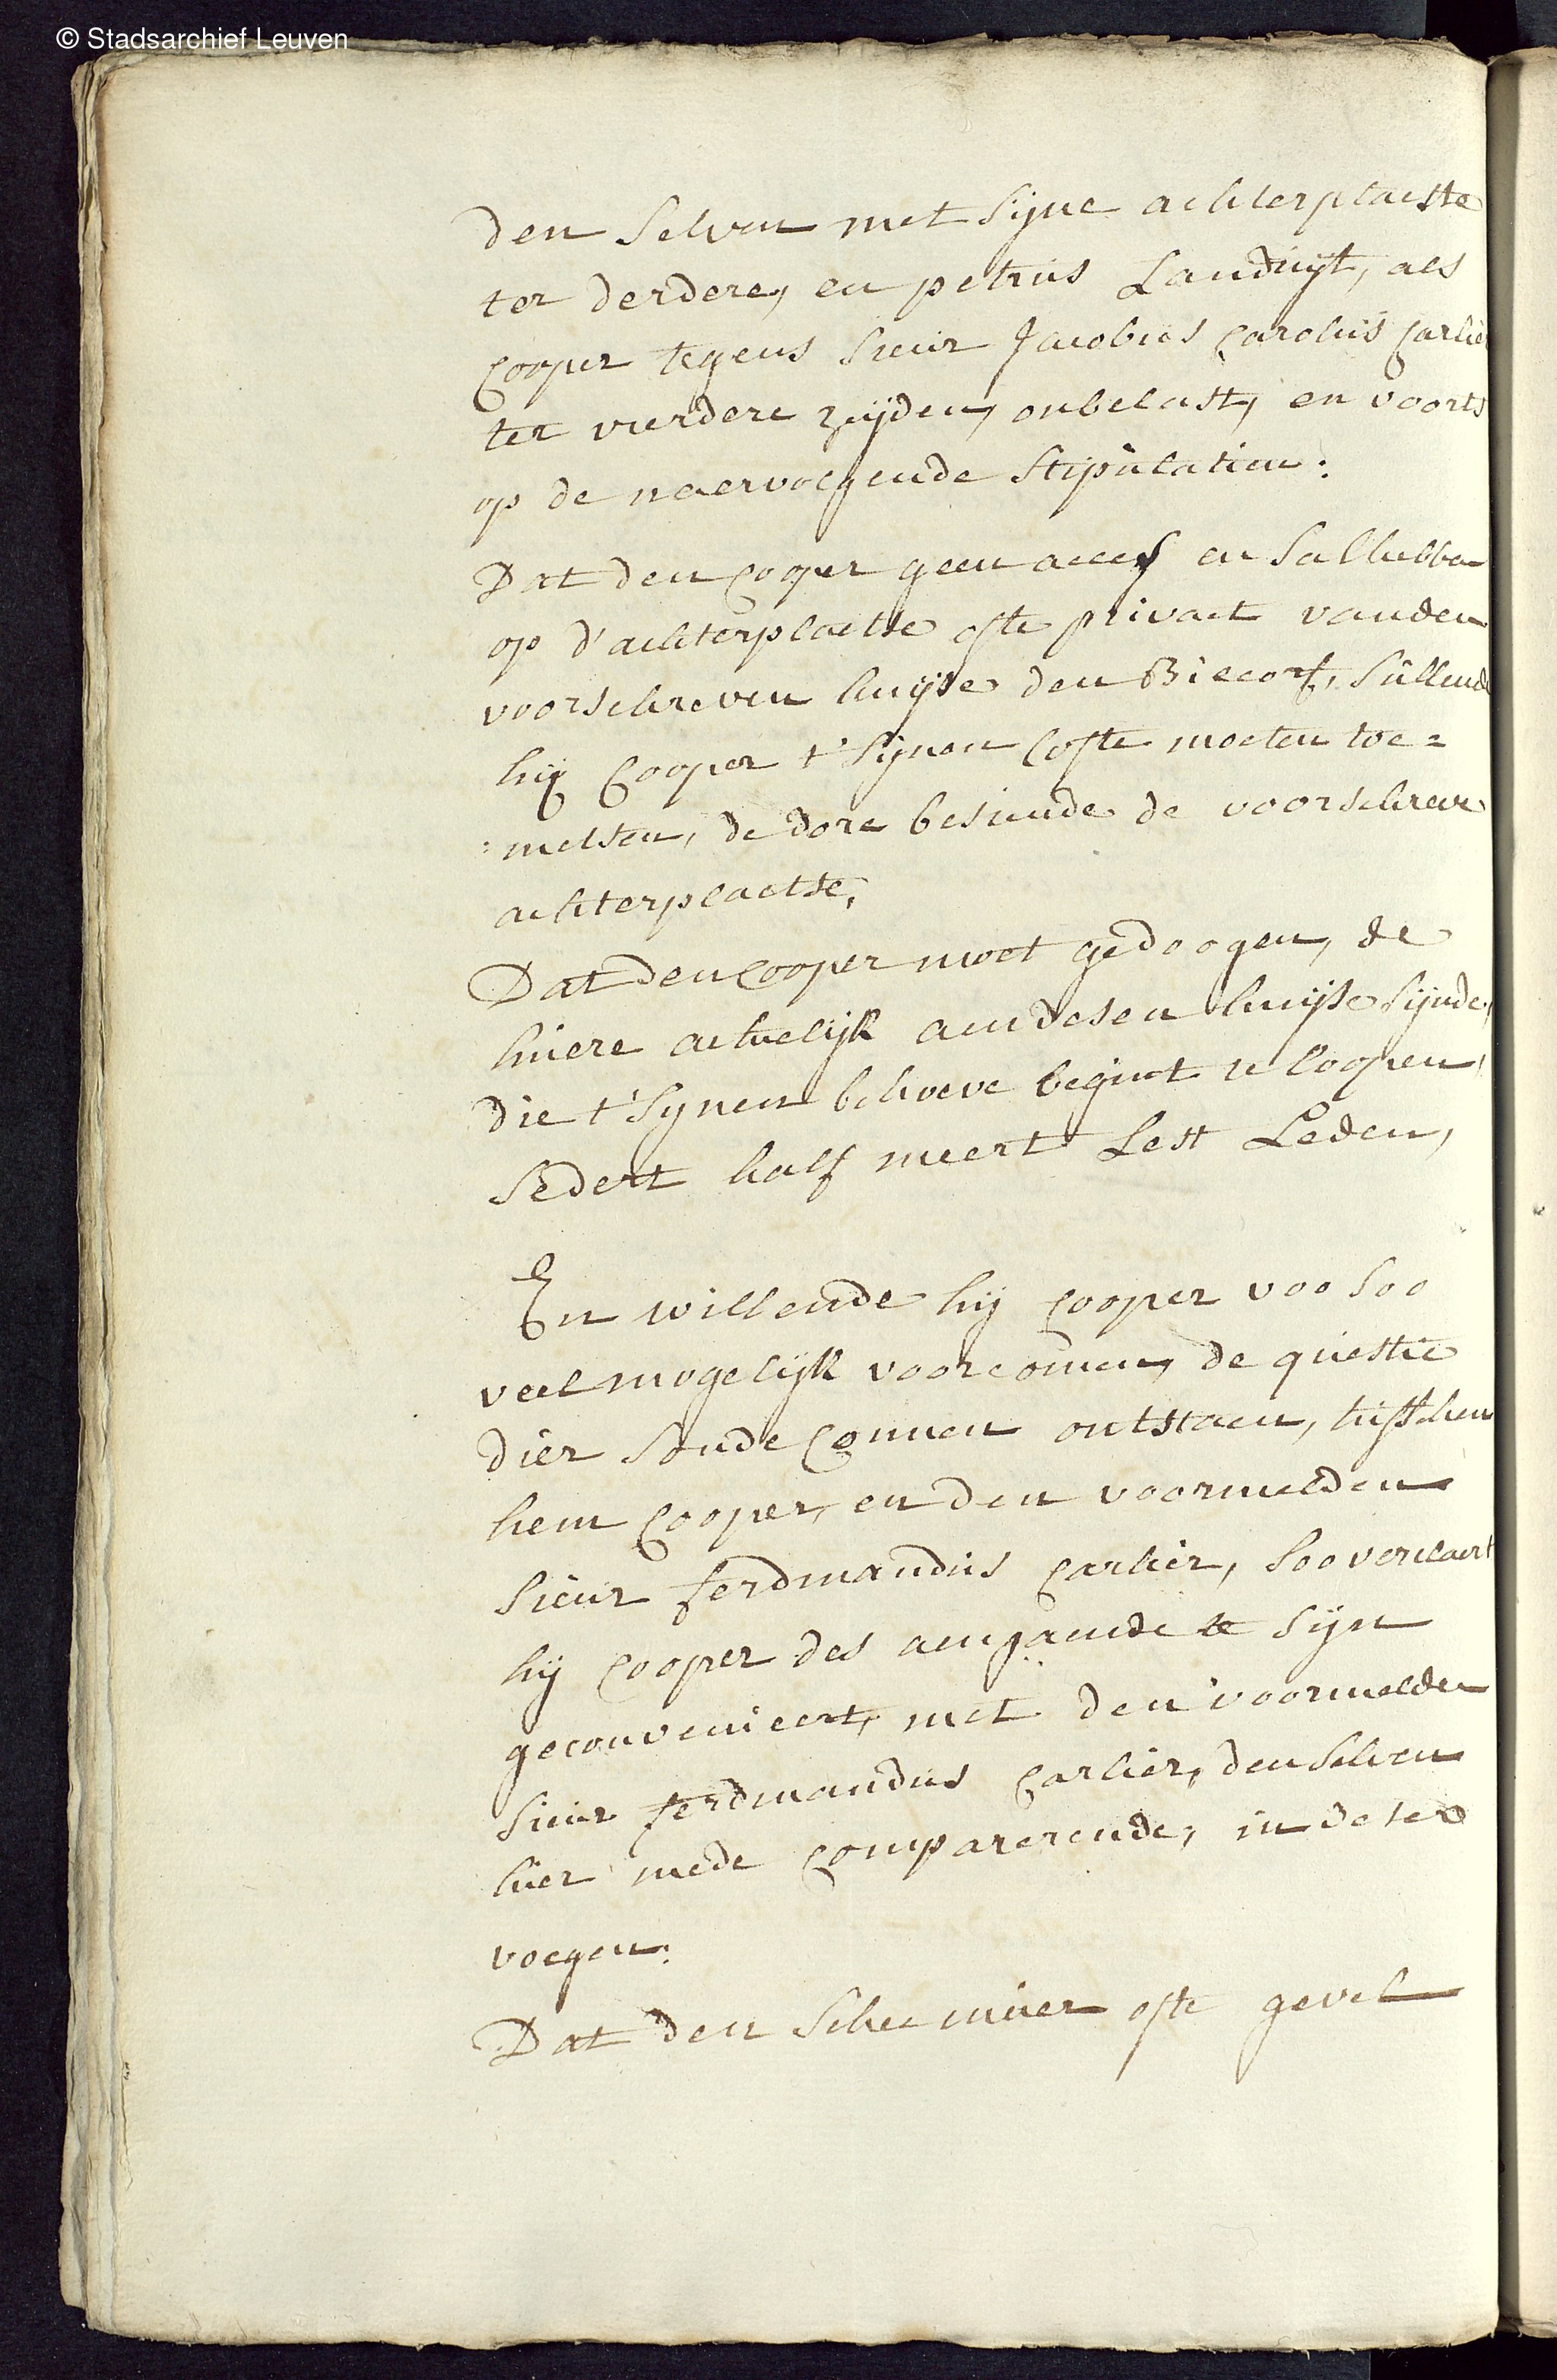 © Stadsarchief Leuven
den selven met sijne achterplaetse
ter derdere, en petrus Landuijt, als
Cooper tegens sieur Jacobus Carolus Carlier
ter vierdere zeijden, onbelast, en voorts
op de naervolgende stipulatien:
Dat den Cooper geen acces en sal hebben
op d'achterplaetse ofte privaet vanden
voorschreven huijse den Biecorf, sullende
hij Cooper t'sijnen Coste moeten toe=
:metsen, de dore besiende de voorschreve
achterplaetse,
Dat den Cooper moet gedoogen, de
huere actuelijk aen desen huijse sijnde,
die t'synen behoeve begint te loopen,
sedert half meert Lest Leden,
En willende hij Cooper voo soo
veel mogelijk voorcomen, de questie
dier soude Connen ontstaen, tusschen
hem Cooper, en den voormelden
sieur ferdinandus Carlier, soo verclaert
hij Cooper des aengaende te sijn
geconvenieert, met den voormelden
sieur ferdinandus Carlier, den selven
hier mede Comparerende, in dese
voegen:
Dat den scheemuer ofte gevel